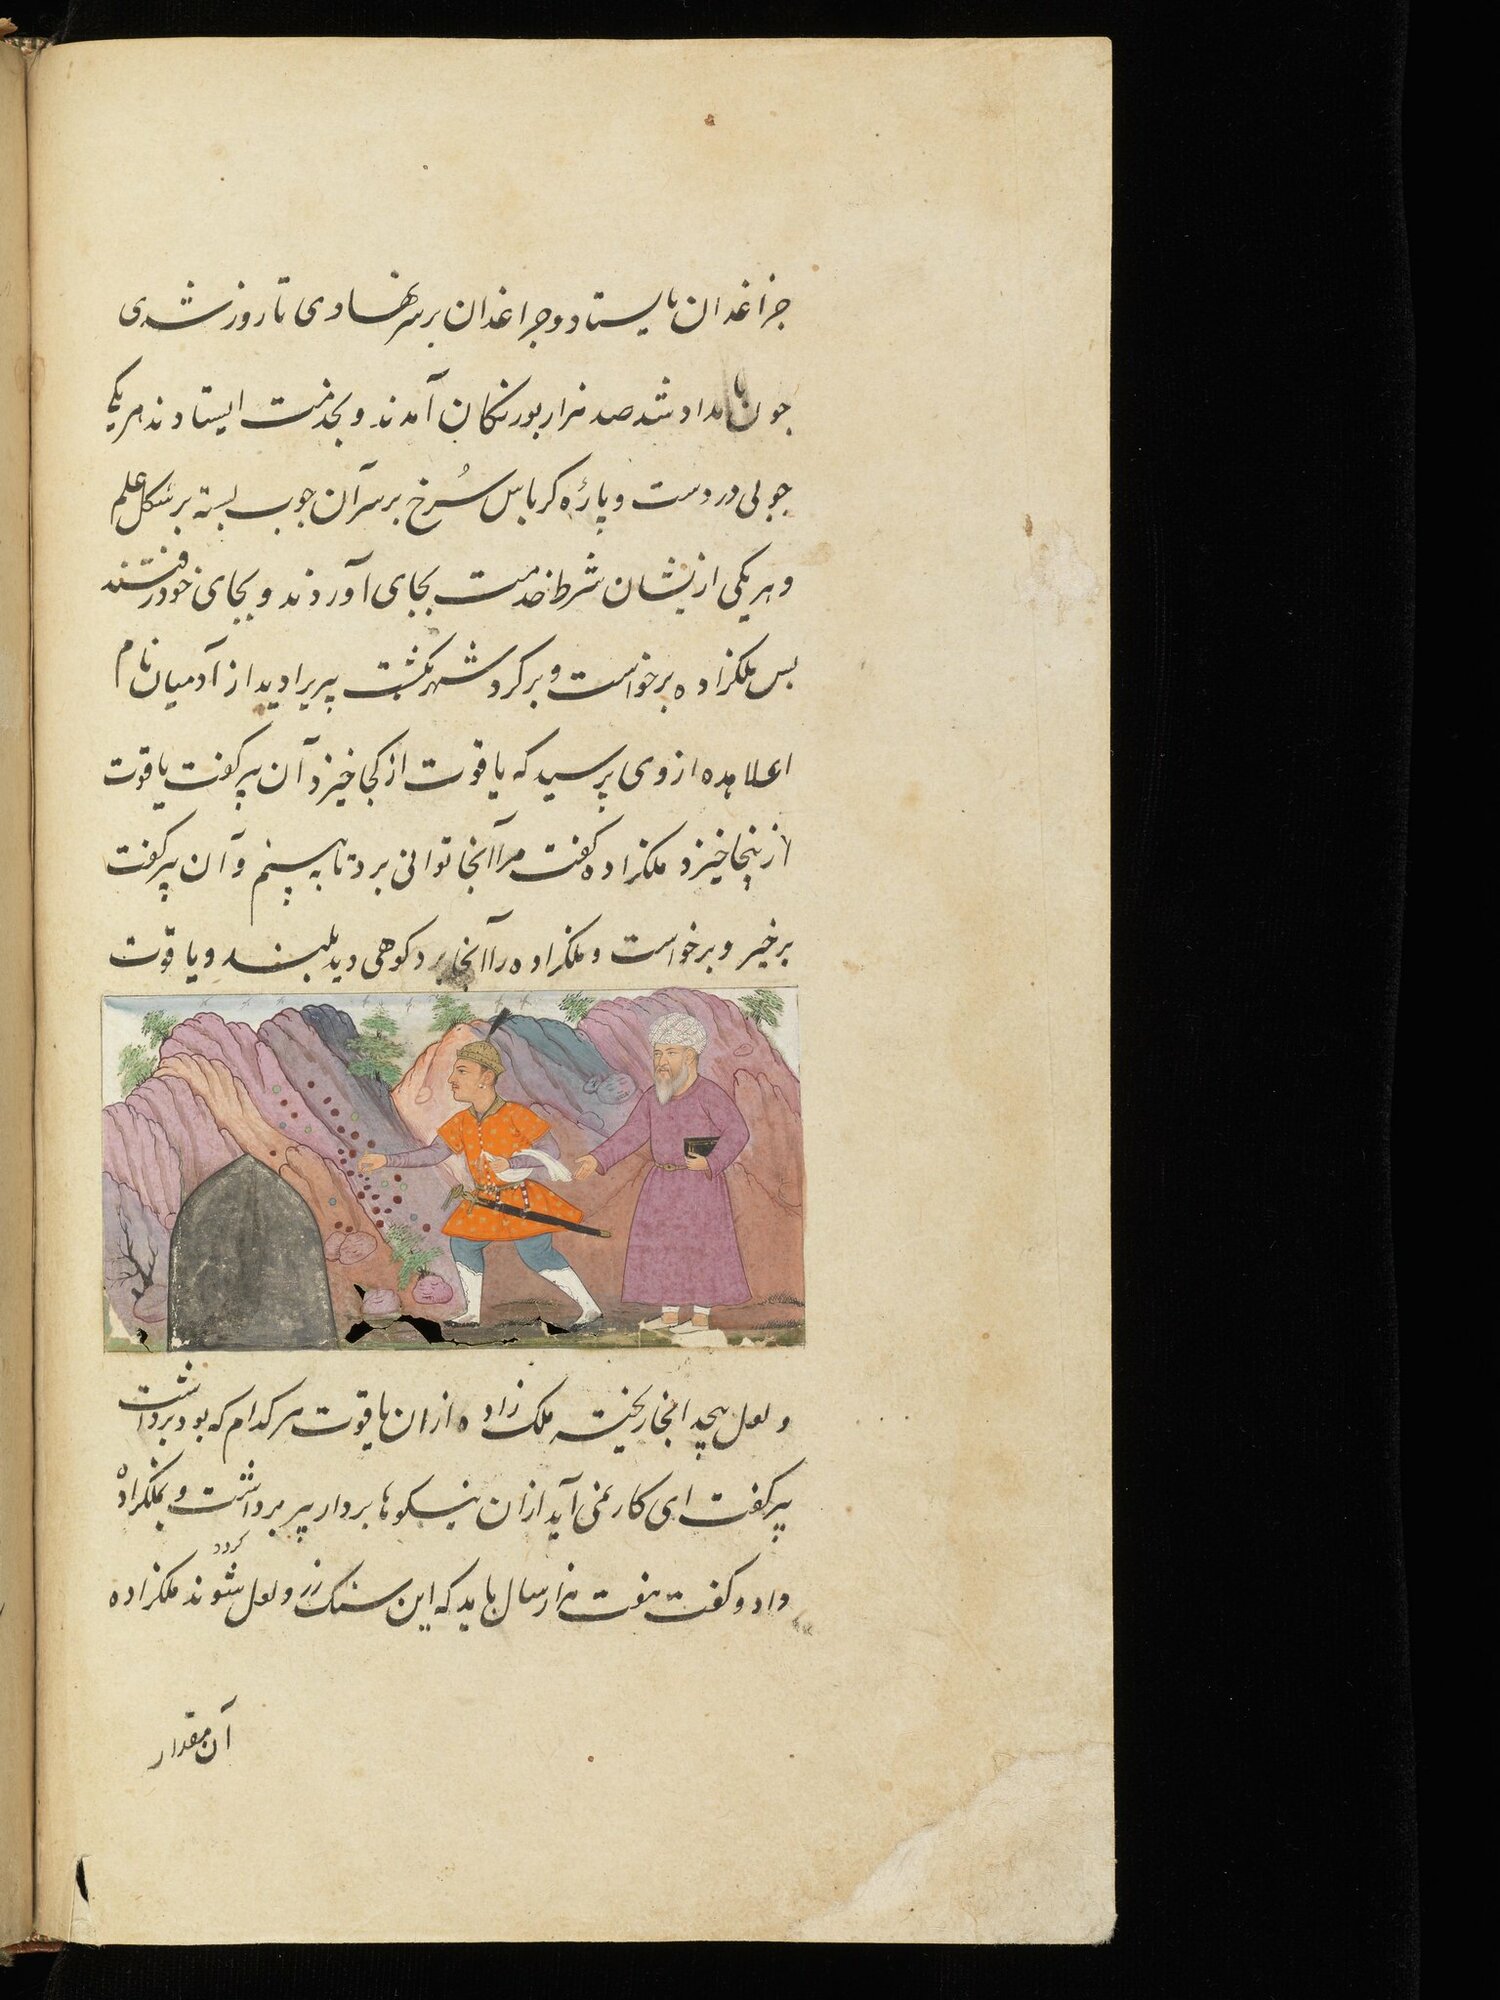 جراغدان بایستاد و جراغدان بر سر نهادی تا روز شدی
جون بامداد شد صد هزار بوزنکان آمدند و بخدمت ایستادند هر یکی
جوبی در دست و پارهٔ کرباس سُرخ بر سر آن جوب بسته بر شکل علم
و هر یکی ازیشان شرط خدمت بجای آوردند و بجای خود رفتند
بس ملکزاده برخواست و بر کرد شهر بکشت پیریرا دید از آدمیان نام
از وی پرسید که یاقوت از کجا خیزد آن پیر کفت یاقوت
ازینجا خیزد ملکزاده کفت مرا آنجا توانی برد تا به بینم و آن پیر کفت
برخیز و برخواست و ملکزاده را آنجا برد کوهی دید بلند و یاقوت
و لعل بیحد آنجا ریخته ملک زاده ازان یاقوت هر کدام که بود برداشت
پیر کفت ای کار نمی آید ازان نیکوها بردار پیر برداشت و بملکزاده
کردد
داد و کفت هفت هزار سال باید که این سنک زر و لعل شوند ملکزاده
آن مقدار